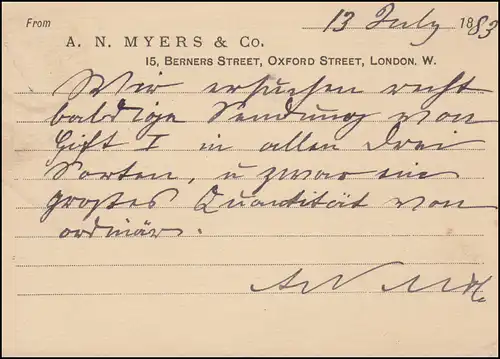 From 13 July 1883
A. N. MYERS & Co.
15, BERNERS STREET, OXFORD STREET, LONDON, W.
Wir ersuchen recht
baldige Sendung von
I in allen drei
Sorten, u zwar ein
großes Quantität von
ordinär.
A N M